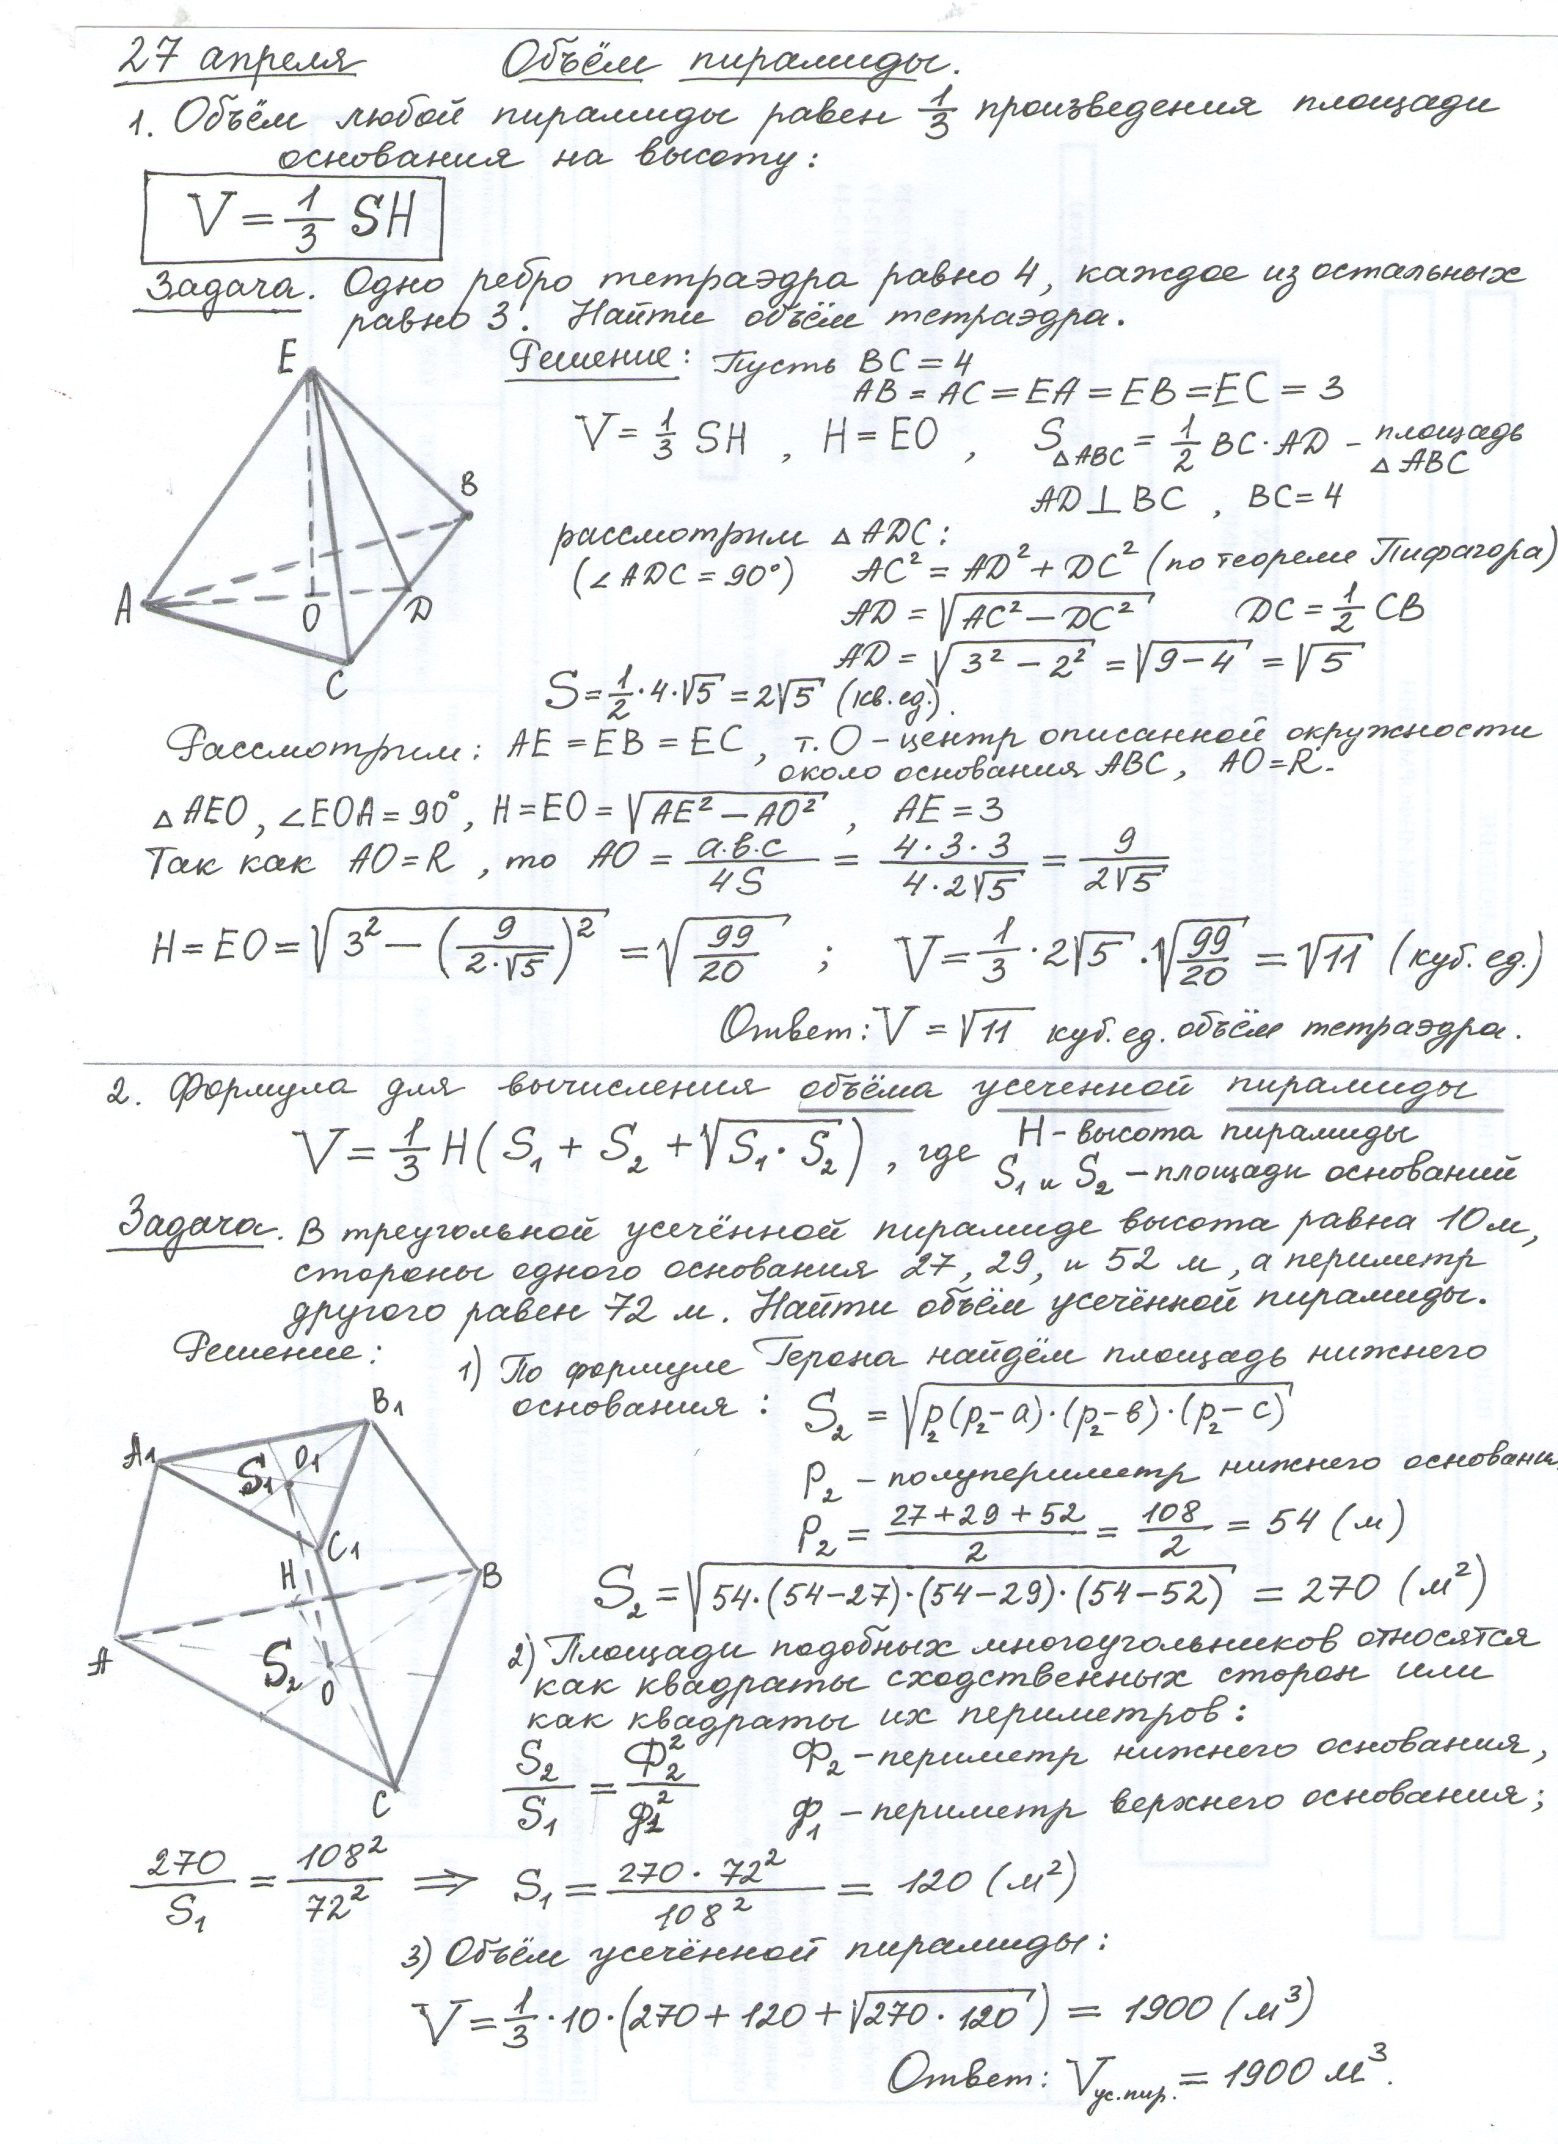 27 апреля Объём пирамиды.
1. Объём любой пирамиды равен 1/3 произведения площади
основания на высоту:
V = 1/3 SH
Задача. Одно ребро тетраэдра равно 4, каждое из остальных
равно 3. Найти объём тетраэдра.
E
B
A
O
D
C
Решение: Пусть BC = 4
AB = AC = EA = EB = EC = 3
V = 1/3 SH , H = EO , S△ABC = 1/2 BC · AD – площадь
△ABC
AD ⊥ BC , BC = 4
рассмотрим △ADC:
(∠ADC = 90°) AC² = AD² + DC² (по теореме Пифагора)
AD = √(AC² – DC²) DC = 1/2 CB
AD = √(3² – 2²) = √(9 – 4) = √5
S = 1/2 · 4 · √5 = 2√5 (кв. ед.).
Рассмотрим: AE = EB = EC , т. O – центр описанной окружности
около основания ABC, AO = R.
△AEO, ∠EOA = 90°, H = EO = √(AE² – AO²) , AE = 3
Так как AO = R , то AO = a·в·c/4S = 4·3·3/4·2√5 = 9/2√5
H = EO = √(3² – (9/2·√5)²) = √(99/20) ; V = 1/3 · 2√5 · √(99/20) = √11 (куб. ед.)
Ответ: V = √11 куб. ед. объём тетраэдра.
2. Формула для вычисления объёма усеченной пирамиды
V = 1/3 H(S₁ + S₂ + √(S₁ · S₂)) , где H – высота пирамиды
S₁ и S₂ – площади оснований
Задача. В треугольной усечённой пирамиде высота равна 10 м,
стороны одного основания 27, 29, и 52 м, а периметр
другого равен 72 м. Найти объём усечённой пирамиды.
Решение: 1) По формуле Герона найдём площадь нижнего
основания : S₂ = √(p₂(p₂ – a)·(p₂ – в)·(p₂ – c))
P₂ – полупериметр нижнего основани
P₂ = 27 + 29 + 52/2 = 108/2 = 54 (м)
S₂ = √(54·(54–27)·(54–29)·(54–52)) = 270 (м²)
B1
A1
S₁
O1
C1
H
B
A
S₂
O
C
2) Площади подобных многоугольников относятся
как квадраты сходственных сторон или
как квадраты их периметров:
S₂/S₁ = Ф₂²/Ф₁² Ф₂ – периметр нижнего основания,
Ф₁ – периметр верхнего основания;
270/S₁ = 108²/72² ⇒ S₁ = 270 · 72²/108² = 120 (м²)
3) Объём усечённой пирамиды:
V = 1/3 · 10 · (270 + 120 + √(270 · 120)) = 1900 (м³)
Ответ: Vус.пир. = 1900 м³.